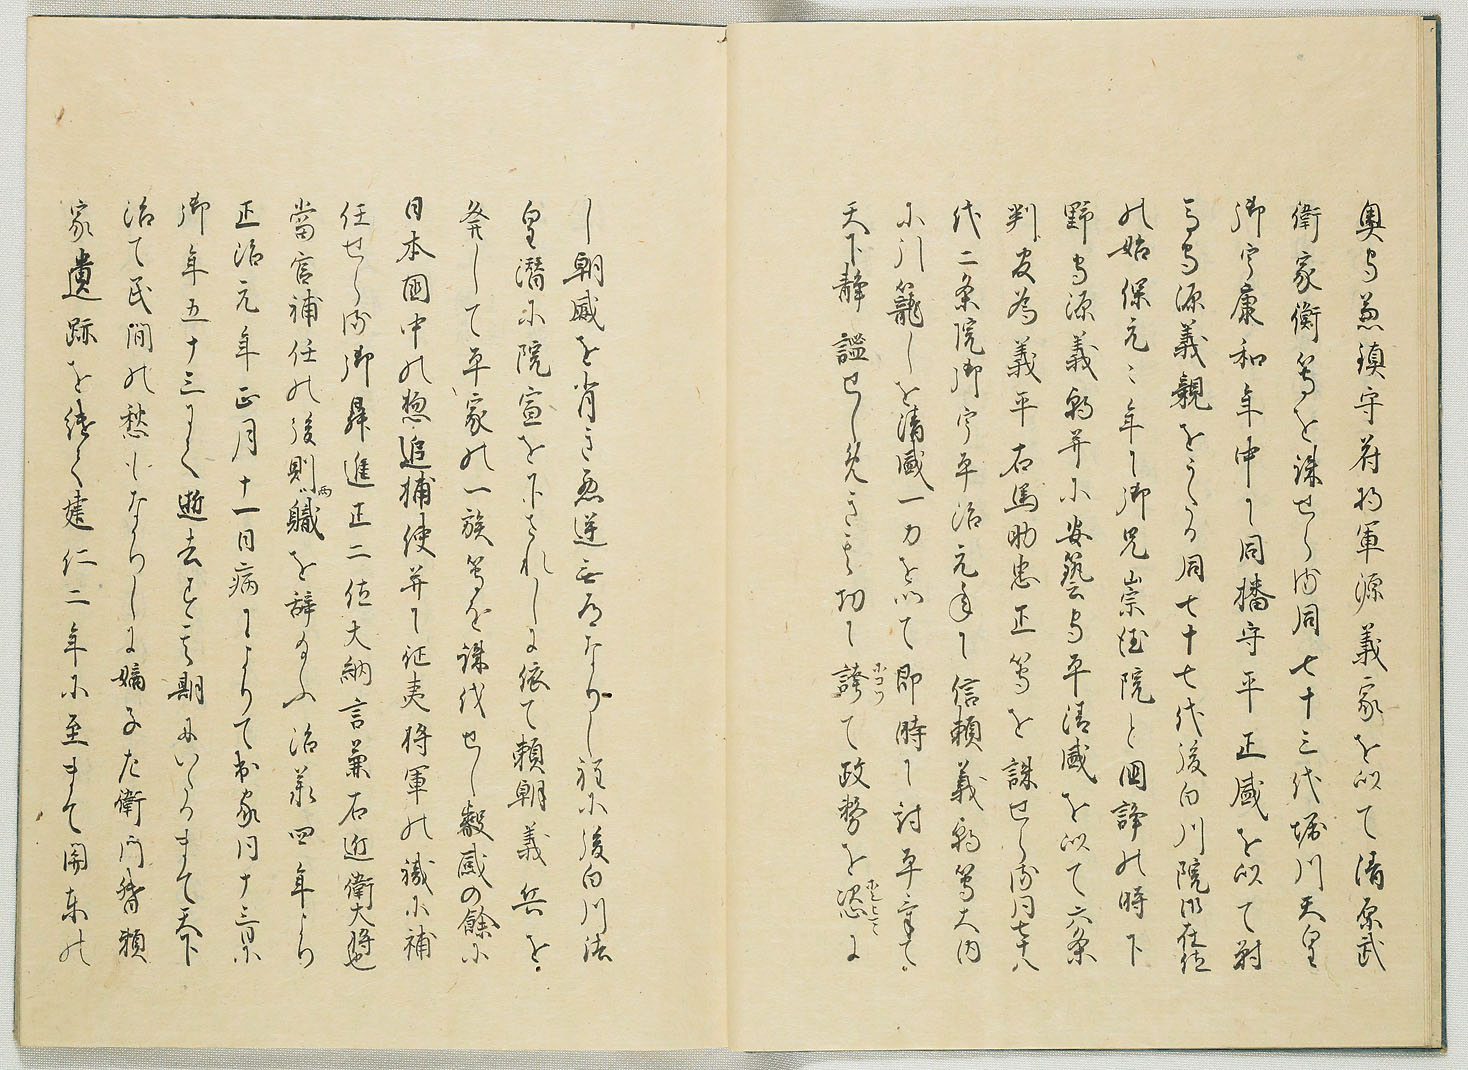 奥守兼鎮守府将軍源義家を以て清原武
衛家衡等を誅せらる同七十三代堀川天皇
御宇康和年中に同播守平正盛を以て對
馬守源義親をうたる同七十七代後白川院御在位
の始保元々年に御兄崇徳院と國諍の時下
野守源義朝并に安藝守平清盛を以て六条
判官為義平右馬助忠正等を誅せらる同七十八
代二条院御宇平治元年に信頼義朝等大内
に引籠しを清盛一力を以て即時に討平て
天下静謐せしめき其功に誇て政務を恣に
し朝威を背き悪逆無道なりし程に後白川法
皇潜に院宣を下されしに依て頼朝義兵を
発して平家の一族等を誅伐せし叡感の餘に
日本國中の惣追捕使并に征夷将軍の職に補
任せらる御昇進正二位大納言兼右近衛大将也
當官補任の後則両職を辞給ふ治承四年より
正治元年正月十一日病によりて出家同十三日に
御年五十三にて逝去す其期にいたるまて天下
治て民間の愁少なかりしに嫡子左衛門督頼
家遺跡を継て建仁二年に至まて関東の